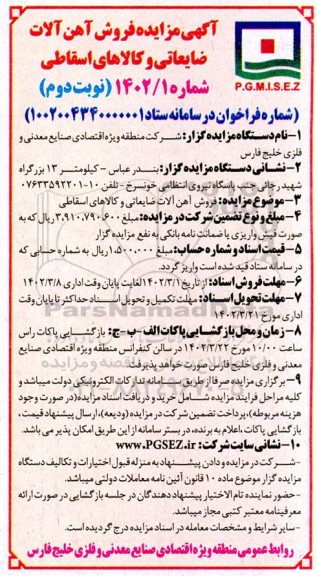 آگهی مزایده فروش آهن آلات
ضایعاتی و کالاهای اسقاطی
شماره ۱۴۰۲/۱ (نوبت دوم)
P.G.M.I.S.E.Z
(شماره فراخوان در سامانه ستاد ۱۰۰۲۰۰۴۳۴۰۰۰۰۰۰۱)
۱-نام دستگاه مزایده گزار: شرکت منطقه ویژه اقتصادی صنایع معدنی و
فلزی خلیج فارس
۲-نشانی دستگاه مزایده گزار: بندر عباس - کیلومتر ۱۳ بزرگراه
شهید رجائی جنب پاسگاه نیروی انتظامی خونسرخ - تلفن ۱۰-۰۷۶۳۳۵۹۲۲۰۱
۳-موضوع مزایده: فروش آهن آلات ضایعاتی و کالاهای اسقاطی
۴-مبلغ و نوع تضمین شرکت در مزایده: مبلغ ۳،۹۱۰،۷۹۰،۶۰۰ ریال که به
صورت فیش واریزی یا ضمانت نامه بانکی به نفع مزایده گزار
۵-قیمت اسناد و شماره حساب: مبلغ ۱،۵۰۰،۰۰۰ ریال به شماره حسابی که
در سامانه ستاد قید شده است واریز گردد.
۶-مهلت فروش اسناد: از تاریخ ۱۴۰۲/۳/۱ لغایت پایان وقت اداری ۱۴۰۲/۳/۸
۷-مهلت تحویل اسناد: مهلت تکمیل و تحویل اسناد حداکثر تا پایان وقت
اداری مورخ ۱۴۰۲/۳/۲۱
۸-زمان و محل بازگشایی پاکات الف-ب-ج: بازگشایی پاکات راس
ساعت ۱۰/۰۰ مورخ ۱۴۰۲/۳/۲۲ در سالن کنفرانس منطقه ویژه اقتصادی صنایع
معدنی و فلزی خلیج فارس صورت خواهد پذیرفت
۹-برگزاری مزایده صرفا از طریق سامانه تدارکات الکترونیکی دولت میباشد و
کلیه مراحل فرایند مزایده شامل خرید و دریافت اسناد مزایده (در صورت وجود
هزینه مربوطه)، پرداخت تضمین شرکت در مزایده (ودیعه)، ارسال پیشنهاد قیمت،
بازگشایی پاکات، اعلام به برنده، در بستر سامانه از این طریق امکان پذیر می باشد.
۱۰-نشانی سایت شرکت: www.PGSEZ.ir
-شرکت در مزایده و دادن پیشنهاد به منزله قبول اختیارات و تکالیف دستگاه
مزایده گزار موضوع ماده ۱۰ قانون آئین نامه معاملات دولتی میباشد.
-حضور نماینده تام الاختیار پیشنهاد دهندگان در جلسه بازگشایی در صورت ارائه
معرفینامه معتبر کتبی مجاز میباشد.
-سایر شرایط و مشخصات معامله در اسناد مزایده درج گردیده است.
روابط عمومی منطقه ویژه اقتصادی صنایع معدنی و فلزی خلیج فارس